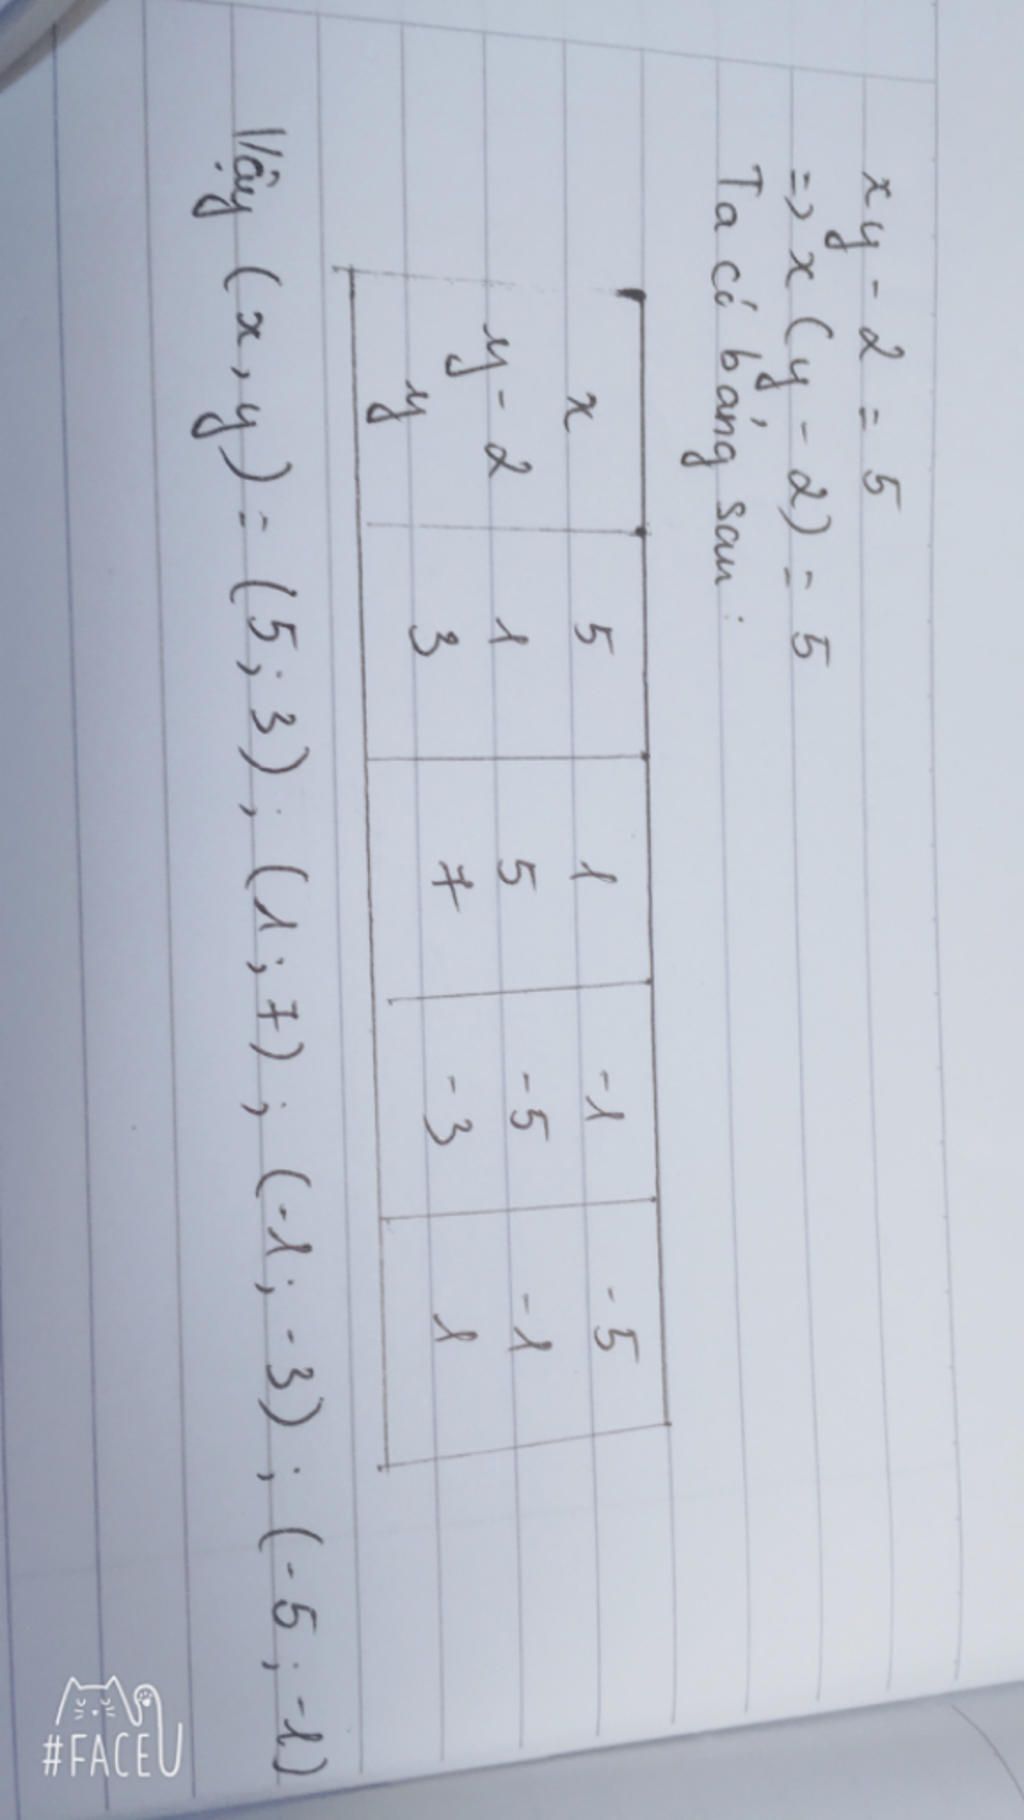 xy - 2 = 5
=> x (y - 2) = 5
Ta có bảng sau :
x 5 1 -1 -5
y - 2 1 5 -5 -1
y 3 7 -3 1
Vậy (x, y) = (5 ; 3) ; (1 ; 7) ; (-1 ; -3) ; (-5 ; -1)
#FACEU